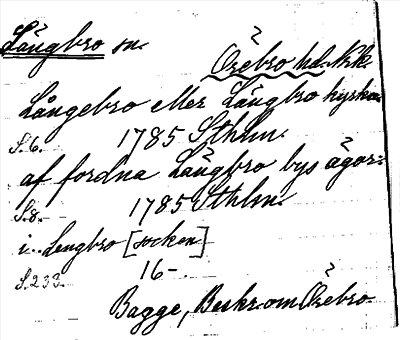 Längbro sn.
Örebro hd. Nk.
Långebro eller Längbro kyrka
S. 6. 1785 Sthlm.
af fordna Längbro bys ägor:
S. 8. 1785 Sthlm.
i Lengbro [socken]
S. 233. 16-
Bagge, Beskr. om Örebro